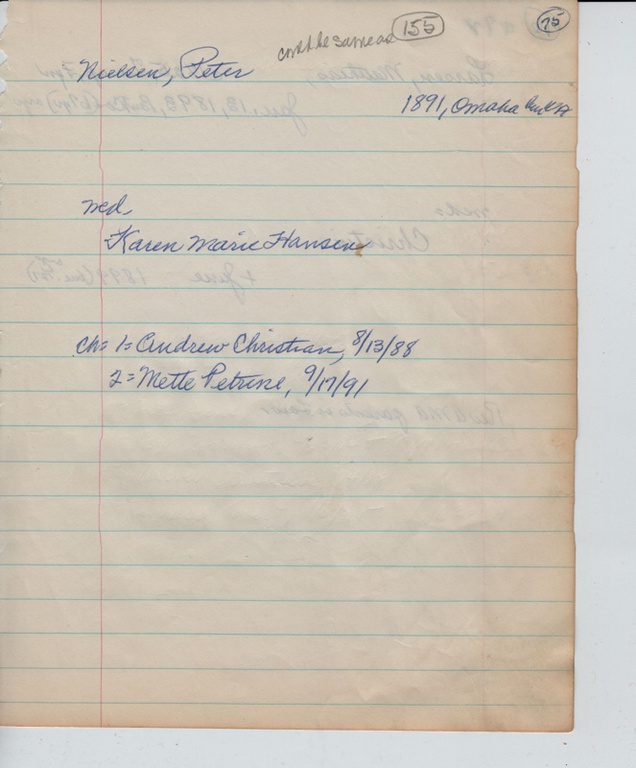 155
75
Nielsen, Peter
1891, Omaha
md.
Karen Marie Hansen
ch= 1= Andrew Christian, 8/13/88
2= Mette Petrine, 9/17/91